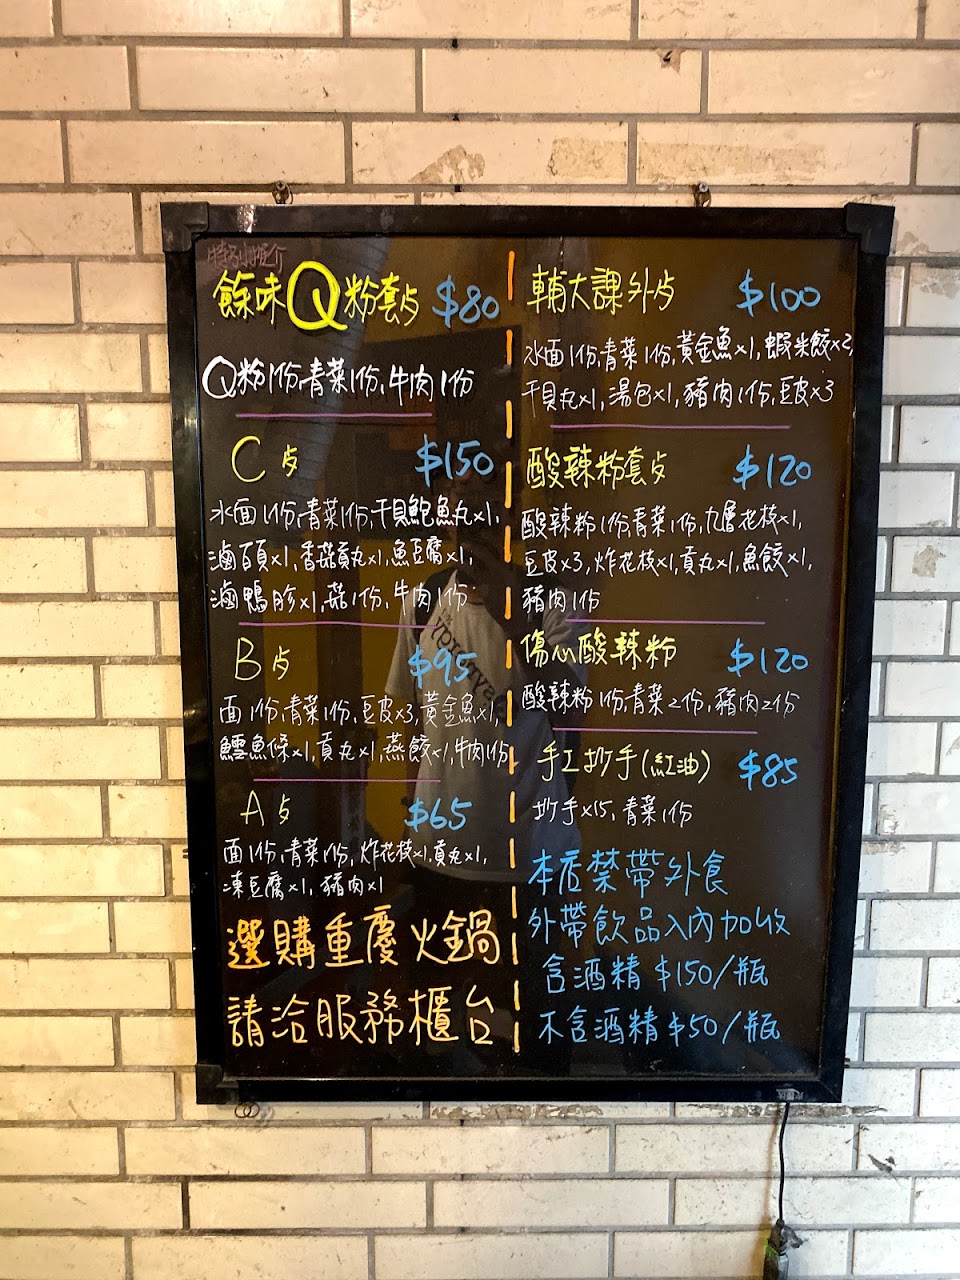 特別推介
餘味Q粉套点 $80
Q粉1份,青菜1份,牛肉1份
C点 $150
水面1份,青菜1份,干貝鮑魚丸x1,
滷百頁x1,香菇貢丸x1,魚豆腐x1,
滷鴨胗x1,菇1份,牛肉1份
B点 $95
面1份,青菜1份,豆皮x3,黃金魚x1,
鱈魚條x1,貢丸x1,燕餃x1,牛肉1份
A点 $65
面1份,青菜1份,炸花枝x1,貢丸x1,
凍豆腐x1,豬肉x1
選購重慶火鍋
請洽服務櫃台
輔大課外点 $100
水面1份,青菜1份,黃金魚x1,蝦米餃x2,
干貝丸x1,湯包x1,豬肉1份,豆皮x3
酸辣粉套点 $120
酸辣粉1份青菜1份,九層花枝x1,
豆皮x3,炸花枝x1,貢丸x1,魚餃x1,
豬肉1份
傷心酸辣粉 $120
酸辣粉1份,青菜2份,豬肉2份
手工抄手(紅油) $85
抄手x15,青菜1份
本店禁帶外食
外帶飲品入內加收
含酒精$150/瓶
不含酒精$50/瓶